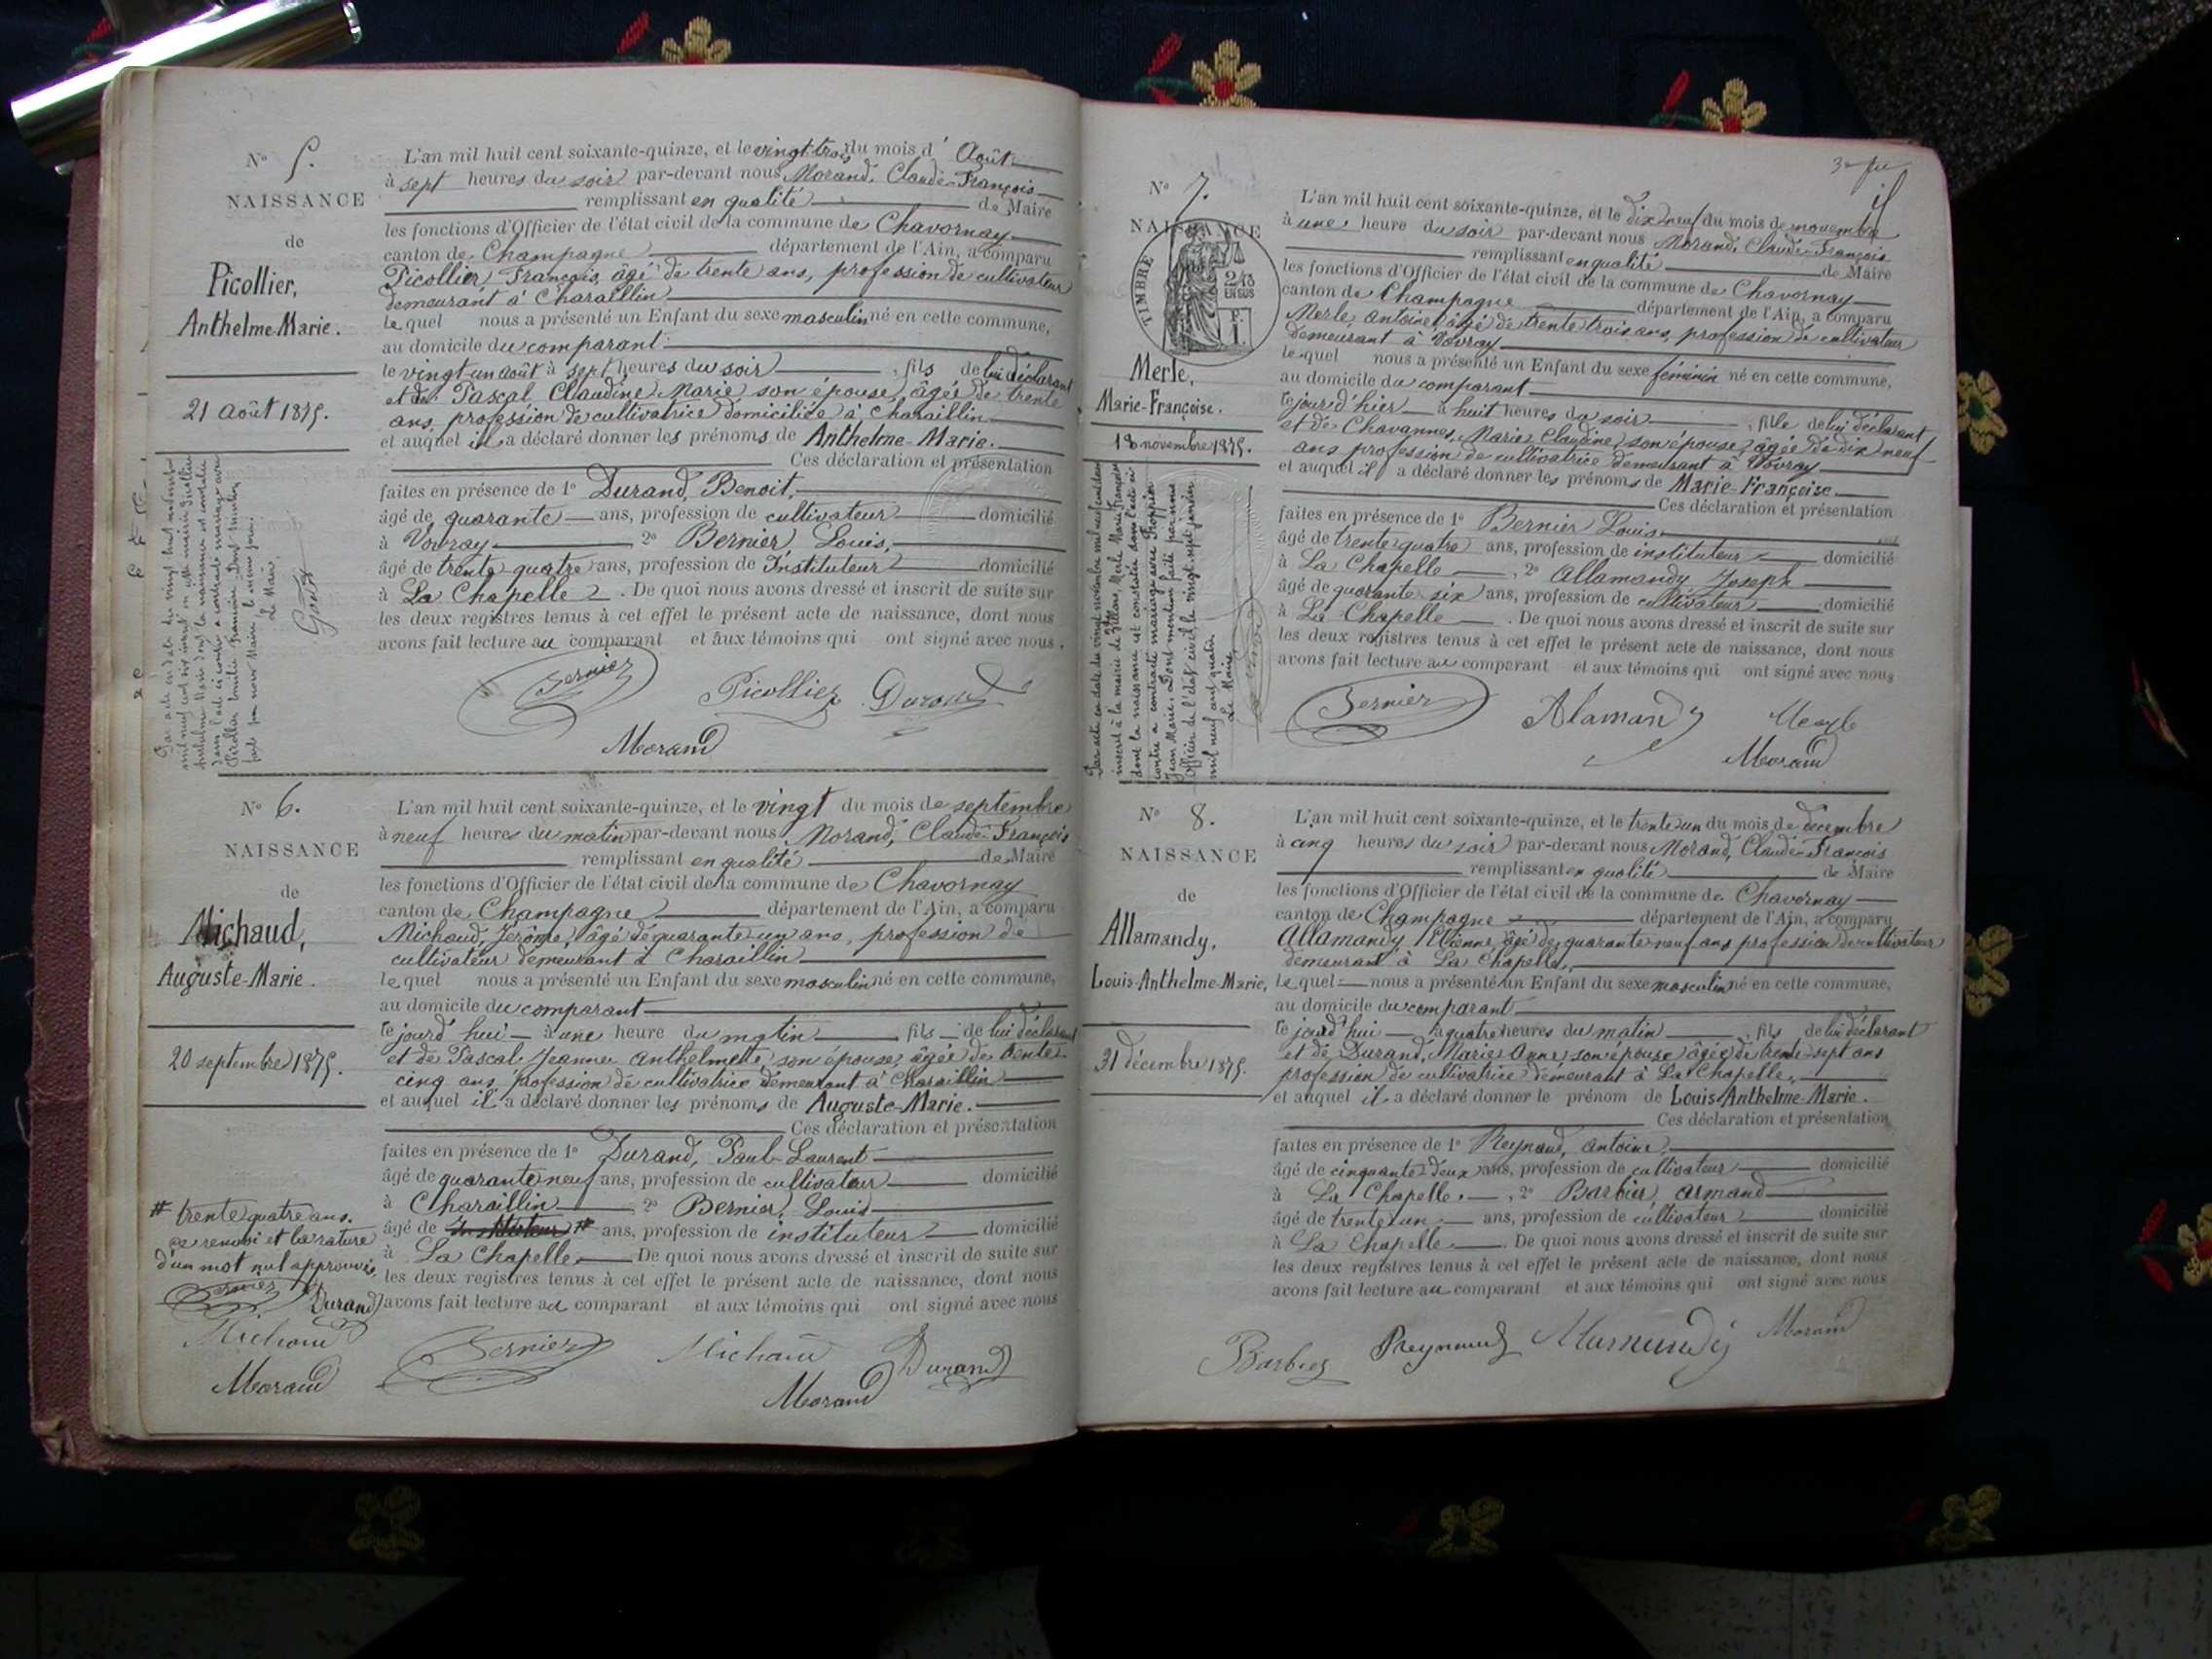 N° 5.
NAISSANCE
de
Picollier,
Anthelme-Marie.
21 août 1875.
L'an mil huit cent soixante-quinze, et le vingt-trois du mois d' Août
à sept heures du soir par-devant nous Morand, Claude-François
remplissant en qualité de Maire
les fonctions d'Officier de l'état civil de la commune de Chavornay
canton de Champagne département de l'Ain, a comparu
Picollier, François, âgé de trente ans, profession de cultivateur
demeurant à Charaillin
lequel nous a présenté un Enfant du sexe masculin né en cette commune,
au domicile du comparant
le vingt-un août à sept heures du soir, fils de lui déclarant
et de Pascal, Claudine-Marie, son épouse, âgée de trente
ans, profession de cultivatrice domiciliée à Charaillin
et auquel il a déclaré donner les prénoms de Anthelme-Marie.
Ces déclaration et présentation
faites en présence de 1° Durand, Benoit,
âgé de quarante ans, profession de cultivateur domicilié
à Vovray 2° Bernier, Louis,
âgé de trente quatre ans, profession de Instituteur domicilié
à La Chapelle. De quoi nous avons dressé et inscrit de suite sur
les deux registres tenus à cet effet le présent acte de naissance, dont nous
avons fait lecture au comparant et aux témoins qui ont signé avec nous.
Bernier Picollier Durand
Morand
N° 6.
NAISSANCE
de
Michaud,
Auguste-Marie.
20 septembre 1875.
L'an mil huit cent soixante-quinze, et le vingt du mois de septembre
à neuf heures du matin par-devant nous Morand, Claude-François
remplissant en qualité de Maire
les fonctions d'Officier de l'état civil de la commune de Chavornay
canton de Champagne département de l'Ain, a comparu
Michaud, Jérôme, âgé de quarante-un ans, profession de
cultivateur demeurant à Charaillin
lequel nous a présenté un Enfant du sexe masculin né en cette commune,
au domicile du comparant
le jourd'hui à une heure du matin fils de lui déclarant
et de Pascal Jeanne Anthelmette son épouse, âgée de trente-
cinq ans, profession de cultivatrice demeurant à Charaillin
et auquel il a déclaré donner les prénoms de Auguste-Marie.
Ces déclaration et présentation
faites en présence de 1° Durand, Paul-Laurent
âgé de quarante neuf ans, profession de cultivateur domicilié
à Charaillin 2° Bernier, Louis
âgé de # ans, profession de instituteur domicilié
à La Chapelle De quoi nous avons dressé et inscrit de suite sur
les deux registres tenus à cet effet le présent acte de naissance, dont nous
avons fait lecture au comparant et aux témoins qui ont signé avec nous
# trente quatre ans.
ce renvoi et la rature
d'un mot nul approuvés
Bernier Durand
Michaud
Morand
Bernier Michaud Durand
Morand
N° 7.
NAISSANCE
TIMBRE
2/10
EN SUS
Merle,
Marie-Françoise.
18 novembre 1875.
L'an mil huit cent soixante-quinze, et le dix neuf du mois de novembre
à une heure du soir par-devant nous Morand, Claude-François
remplissant en qualité de Maire
les fonctions d'Officier de l'état civil de la commune de Chavornay
canton de Champagne département de l'Ain, a comparu
Merle, Antoine, âgé de trente trois ans, profession de cultivateur
demeurant à Vovray
lequel nous a présenté un Enfant du sexe féminin né en cette commune,
au domicile du comparant
le jour d'hier à huit heures du soir, fille de lui déclarant
et de Chavannes, Marie Claudine, son épouse, âgée de dix neuf
ans profession de cultivatrice demeurant à Vovray
et auquel il a déclaré donner les prénoms de Marie-Françoise.
Ces déclaration et présentation
faites en présence de 1° Bernier Louis
âgé de trente quatre ans, profession de instituteur domicilié
à La Chapelle, 2° Allamandy Joseph
âgé de quarante six ans, profession de cultivateur domicilié
à La Chapelle. De quoi nous avons dressé et inscrit de suite sur
les deux registres tenus à cet effet le présent acte de naissance, dont nous
avons fait lecture au comparant et aux témoins qui ont signé avec nous
Par acte en date du vingt novembre mil neuf cent
inscrit à la mairie de Merle Marie Françoise
dont la naissance est constatée dans l'acte ci-
contre a contracté mariage avec
Jean Marie. Dont mention faite par nous
Officier de l'état civil le vingt-sept janvier
mil neuf cent quatre.
Le Maire
Bernier Alamandy Merle
Morand
N° 8.
NAISSANCE
de
Allamandy,
Louis-Anthelme-Marie,
31 décembre 1875.
L'an mil huit cent soixante-quinze, et le trente un du mois de décembre
à cinq heures du soir par-devant nous Morand, Claude-François
remplissant en qualité de Maire
les fonctions d'Officier de l'état civil de la commune de Chavornay
canton de Champagne département de l'Ain, a comparu
Allamandy, Etienne, âgé de quarante neuf ans profession de cultivateur
demeurant à La Chapelle,
lequel nous a présenté un Enfant du sexe masculin né en cette commune,
au domicile du comparant
le jourd'hui à quatre heures du matin, fils de lui déclarant
et de Durand, Marie-Anne, son épouse âgée de trente-sept ans
profession de cultivatrice demeurant à La Chapelle,
et auquel il a déclaré donner le prénom de Louis-Anthelme-Marie.
Ces déclaration et présentation
faites en présence de 1° Reynaud, Antoine,
âgé de cinquante-deux ans, profession de cultivateur domicilié
à La Chapelle, 2° Barbier, Armand
âgé de trente un ans, profession de cultivateur domicilié
à La Chapelle. De quoi nous avons dressé et inscrit de suite sur
les deux registres tenus à cet effet le présent acte de naissance, dont nous
avons fait lecture au comparant et aux témoins qui ont signé avec nous
Barbier Reynaud Allamandy Morand